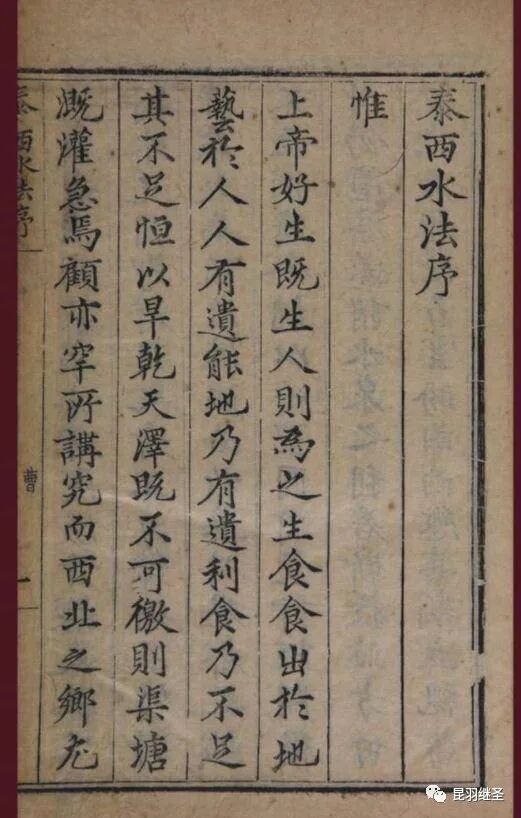 泰西水法序
惟
上帝好生既生人則為之生食食出於地
藝於人人有遺能地乃有遺利食乃不足
其不足恒以旱乾天澤既不可徼則渠塘
溉灌急焉顧亦罕所講究而西北之鄉尤
泰西水法序
曹
一
昆羽继圣